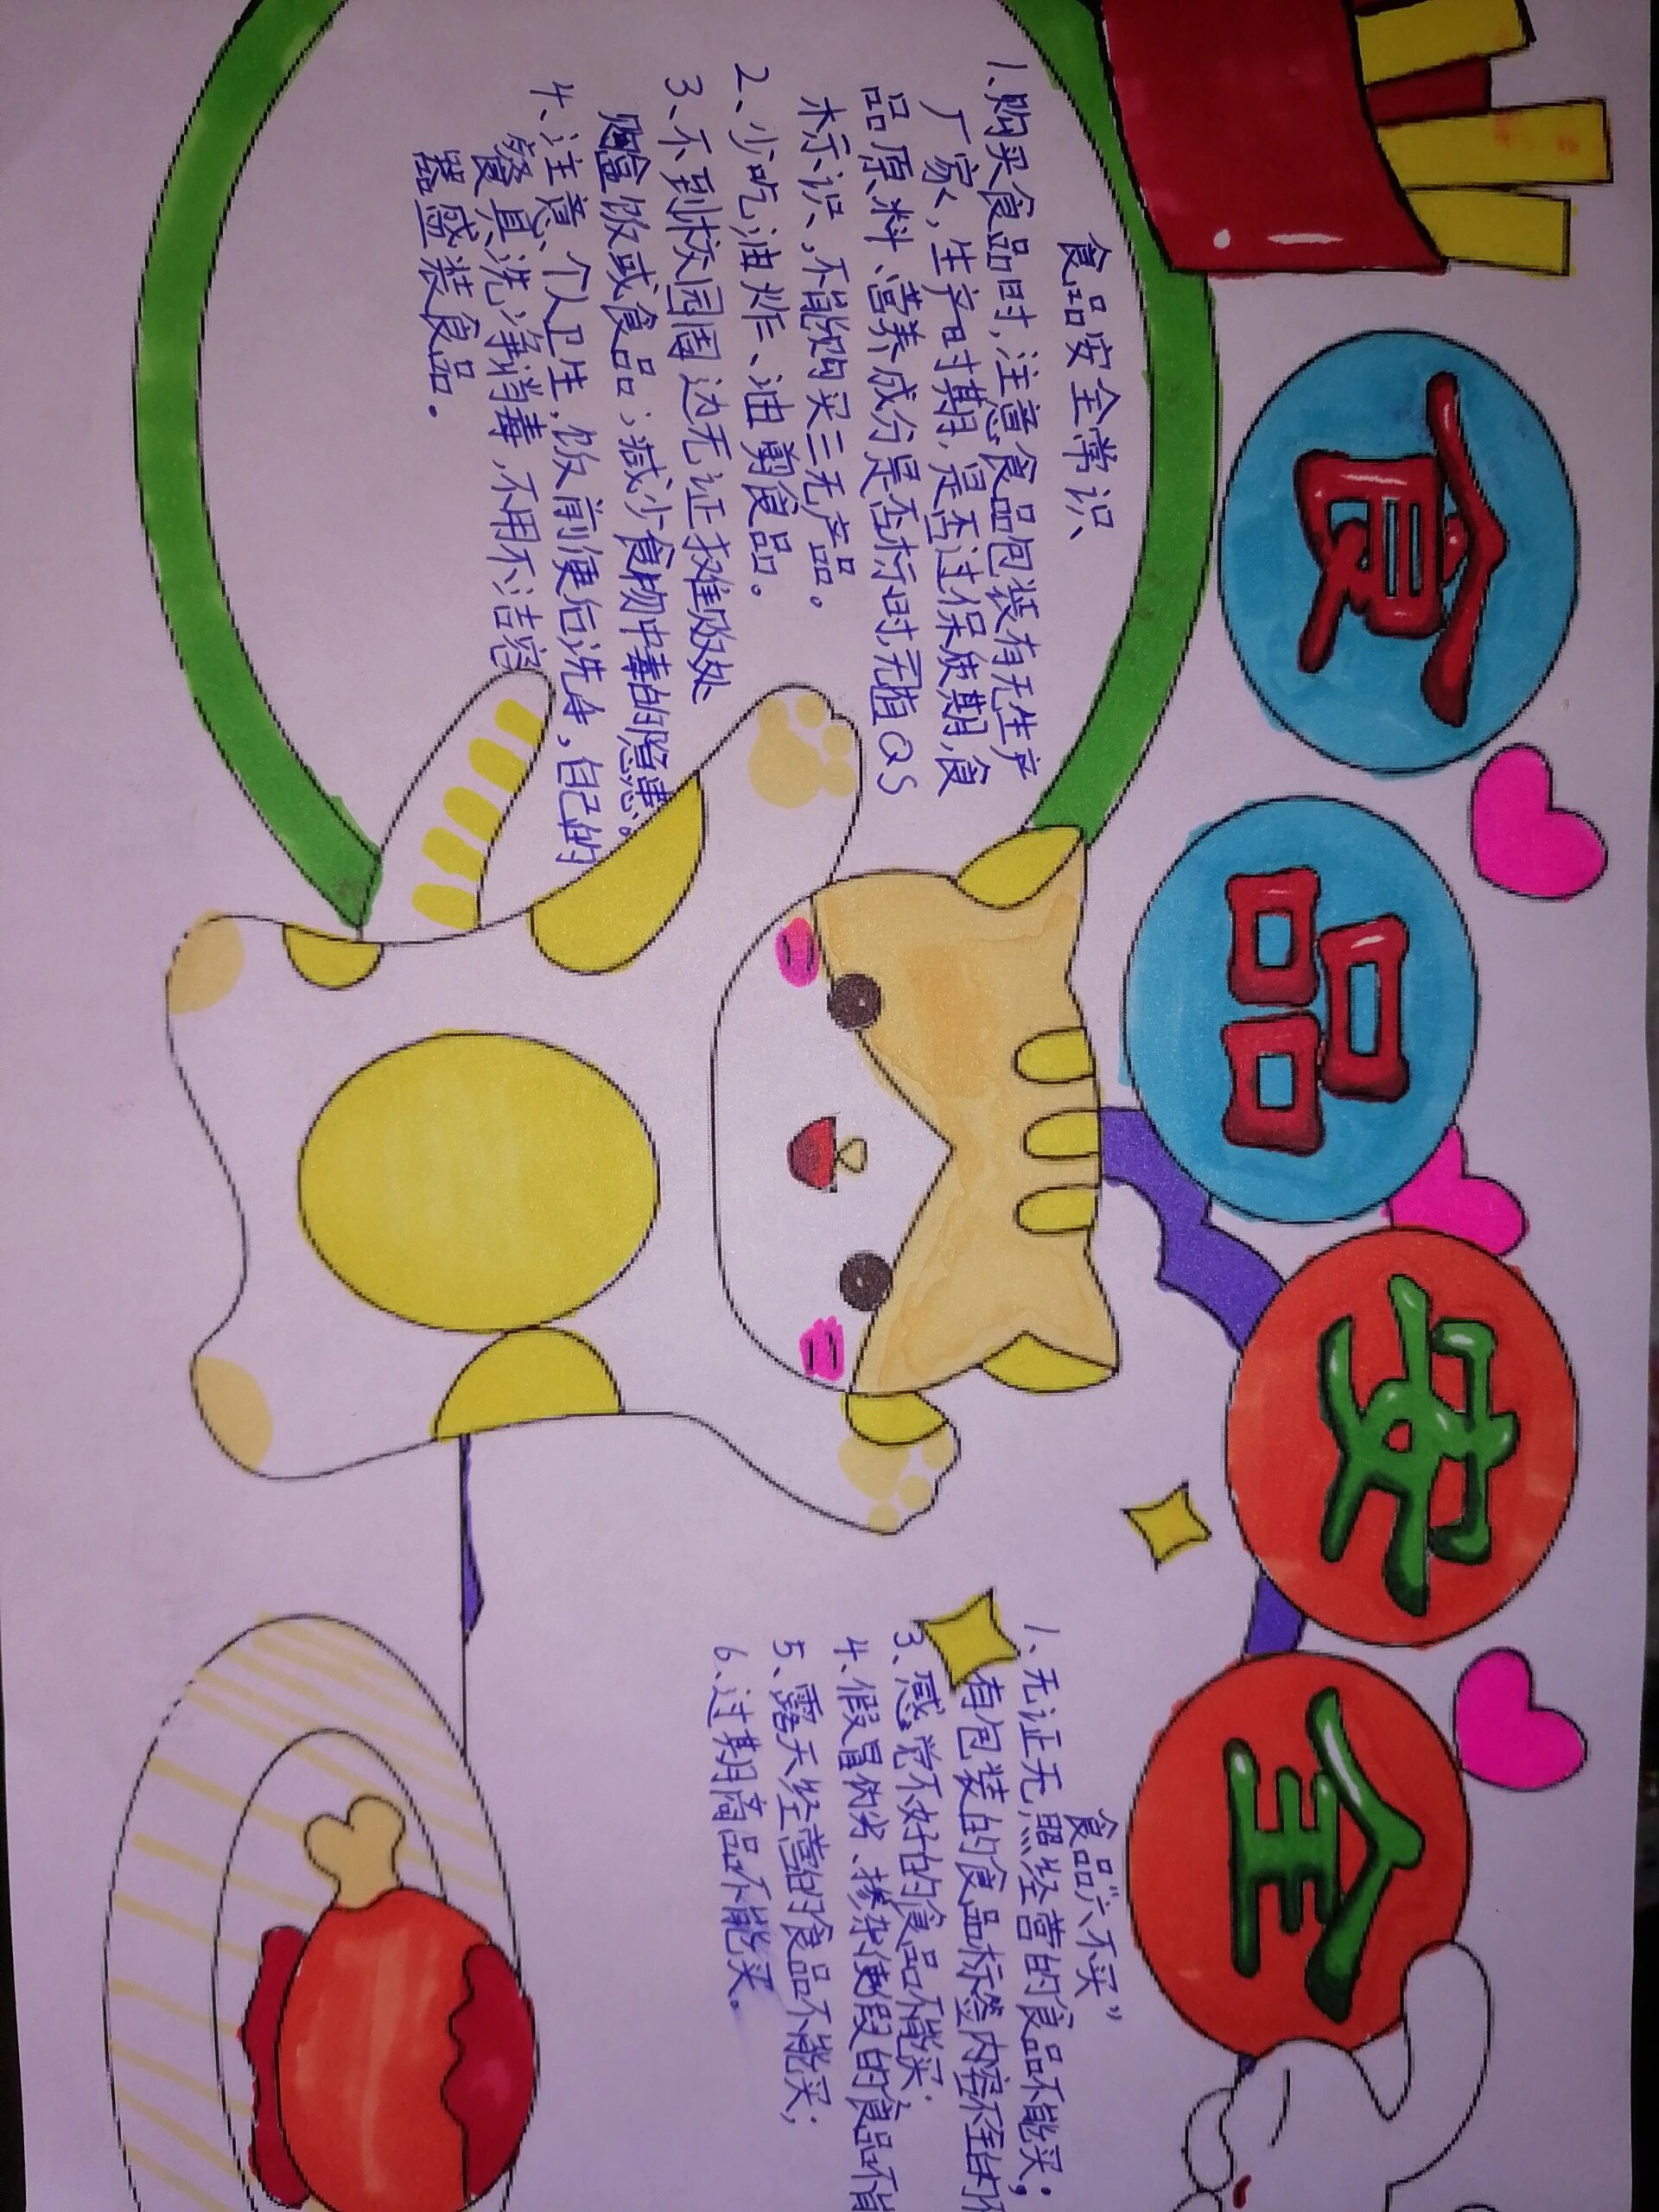 食品安全
食品安全常识
1、购买食品时,注意食品包装有无生产
厂家,生产日期,是否过保质期,食
品原料、营养成分是否标明,无 QS
标识,不能购买三无产品。
2、少吃油炸、油煎食品。
3、不到校园周边无证摊贩处
购 饭或食品,减少食物中毒的隐患。
4、注意个人卫生,饭前便后洗手,自己的
餐具洗净消毒,不用不洁容
器盛装食品。
食品“六不买”
1、无证无照经营的食品不能买;
有包装的食品标签内容不全的不
3、感觉不好的食品不能买;
4、假冒伪劣、掺杂使假的食品不能
5、露天经营的食品不能买;
6、过期商品不能买。